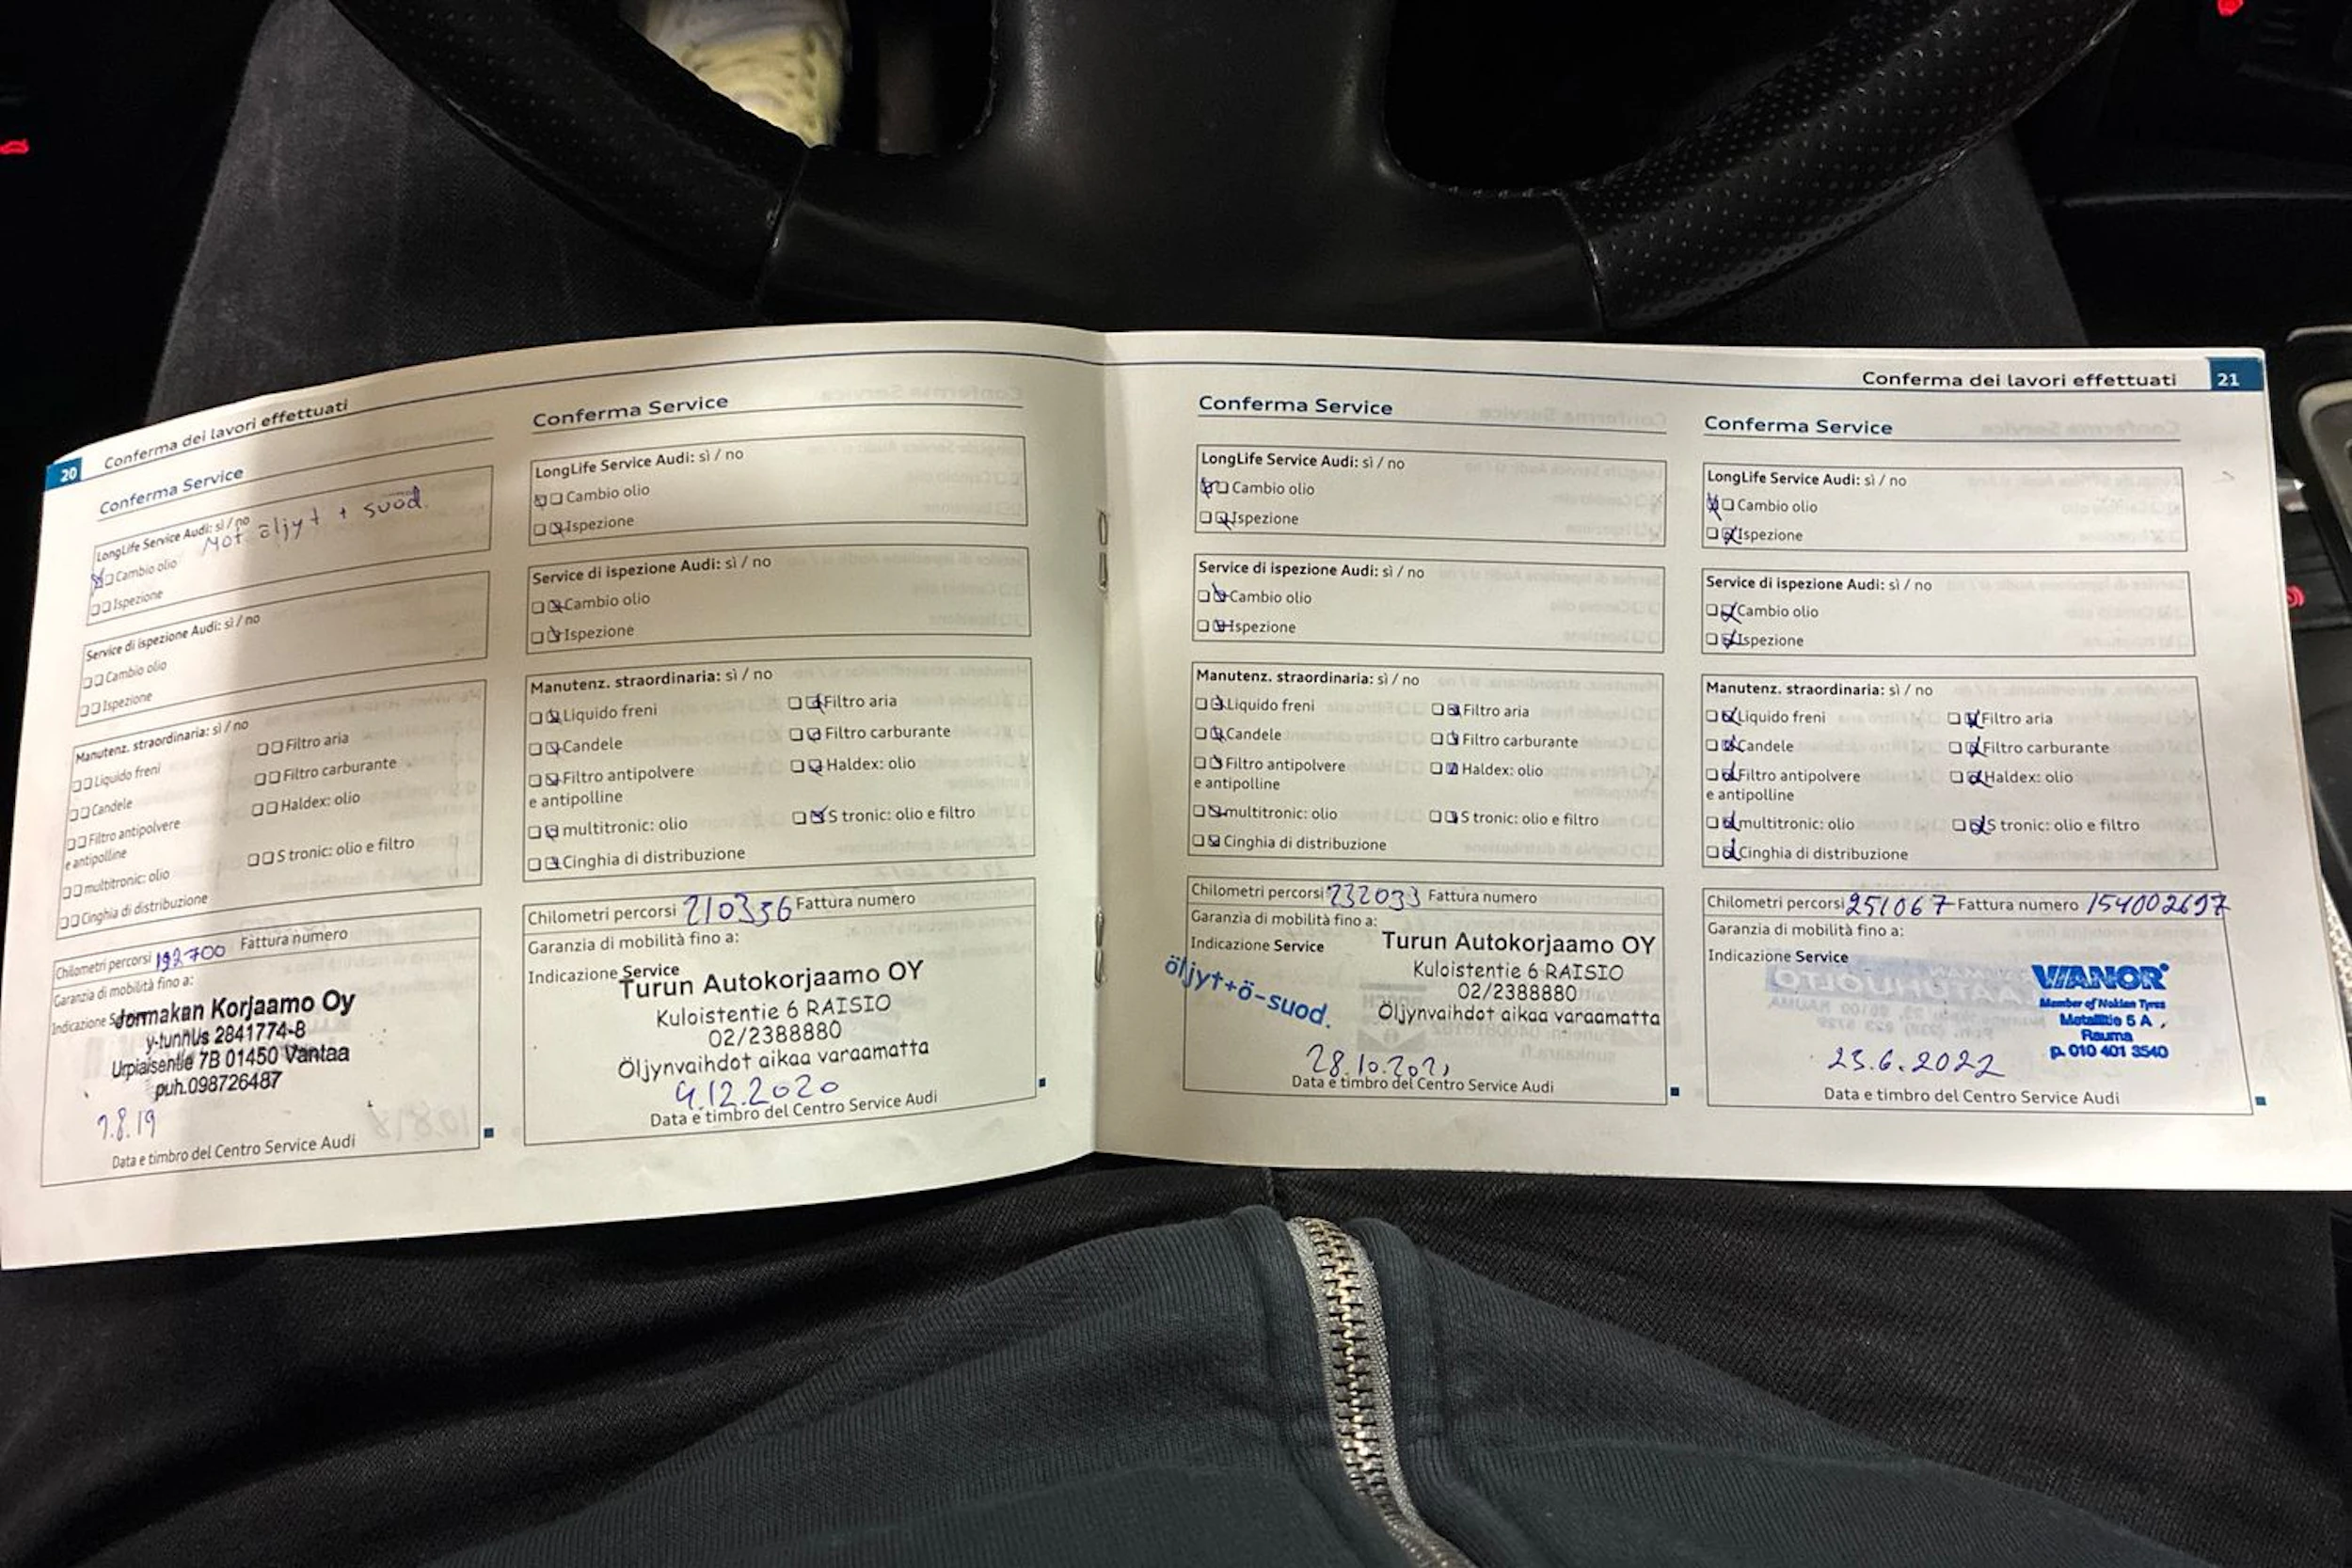 20
Conferma dei lavori effettuati
Conferma Service
LongLife Service Audi: sì / no
Mot. öljyt + suod.
Cambio olio
Ispezione
Service di ispezione Audi: sì / no
Cambio olio
Ispezione
Manutenz. straordinaria: sì / no
Liquido freni
Filtro aria
Candele
Filtro carburante
Filtro antipolvere
e antipolline
Haldex: olio
multitronic: olio
S tronic: olio e filtro
Cinghia di distribuzione
Chilometri percorsi 192700 Fattura numero
Garanzia di mobilità fino a:
Indicazione
Jormakan Korjaamo Oy
y-tunnus 2841774-8
Urpiaisentie 7B 01450 Vantaa
puh.098726487
7.8.19
Data e timbro del Centro Service Audi
Conferma Service
LongLife Service Audi: sì / no
Cambio olio
Ispezione
Service di ispezione Audi: sì / no
Cambio olio
Ispezione
Manutenz. straordinaria: sì / no
Liquido freni
Filtro aria
Candele
Filtro carburante
Filtro antipolvere
e antipolline
Haldex: olio
multitronic: olio
S tronic: olio e filtro
Cinghia di distribuzione
Chilometri percorsi 210336 Fattura numero
Garanzia di mobilità fino a:
Indicazione Service
Turun Autokorjaamo OY
Kuloistentie 6 RAISIO
02/2388880
Öljynvaihdot aikaa varaamatta
4.12.2020
Data e timbro del Centro Service Audi
Conferma dei lavori effettuati
21
Conferma Service
LongLife Service Audi: sì / no
Cambio olio
Ispezione
Service di ispezione Audi: sì / no
Cambio olio
Ispezione
Manutenz. straordinaria: sì / no
Liquido freni
Filtro aria
Candele
Filtro carburante
Filtro antipolvere
e antipolline
Haldex: olio
multitronic: olio
S tronic: olio e filtro
Cinghia di distribuzione
Chilometri percorsi 232033 Fattura numero
Garanzia di mobilità fino a:
Indicazione Service
öljyt+ö-suod.
Turun Autokorjaamo OY
Kuloistentie 6 RAISIO
02/2388880
Öljynvaihdot aikaa varaamatta
28.10.2021
Data e timbro del Centro Service Audi
Conferma Service
LongLife Service Audi: sì / no
Cambio olio
Ispezione
Service di ispezione Audi: sì / no
Cambio olio
Ispezione
Manutenz. straordinaria: sì / no
Liquido freni
Filtro aria
Candele
Filtro carburante
Filtro antipolvere
e antipolline
Haldex: olio
multitronic: olio
S tronic: olio e filtro
Cinghia di distribuzione
Chilometri percorsi 251067 Fattura numero 154002697
Garanzia di mobilità fino a:
Indicazione Service
VIANOR
Member of Nokian Tyres
Metallitie 5 A,
Rauma
p. 010 401 3540
23.6.2022
Data e timbro del Centro Service Audi